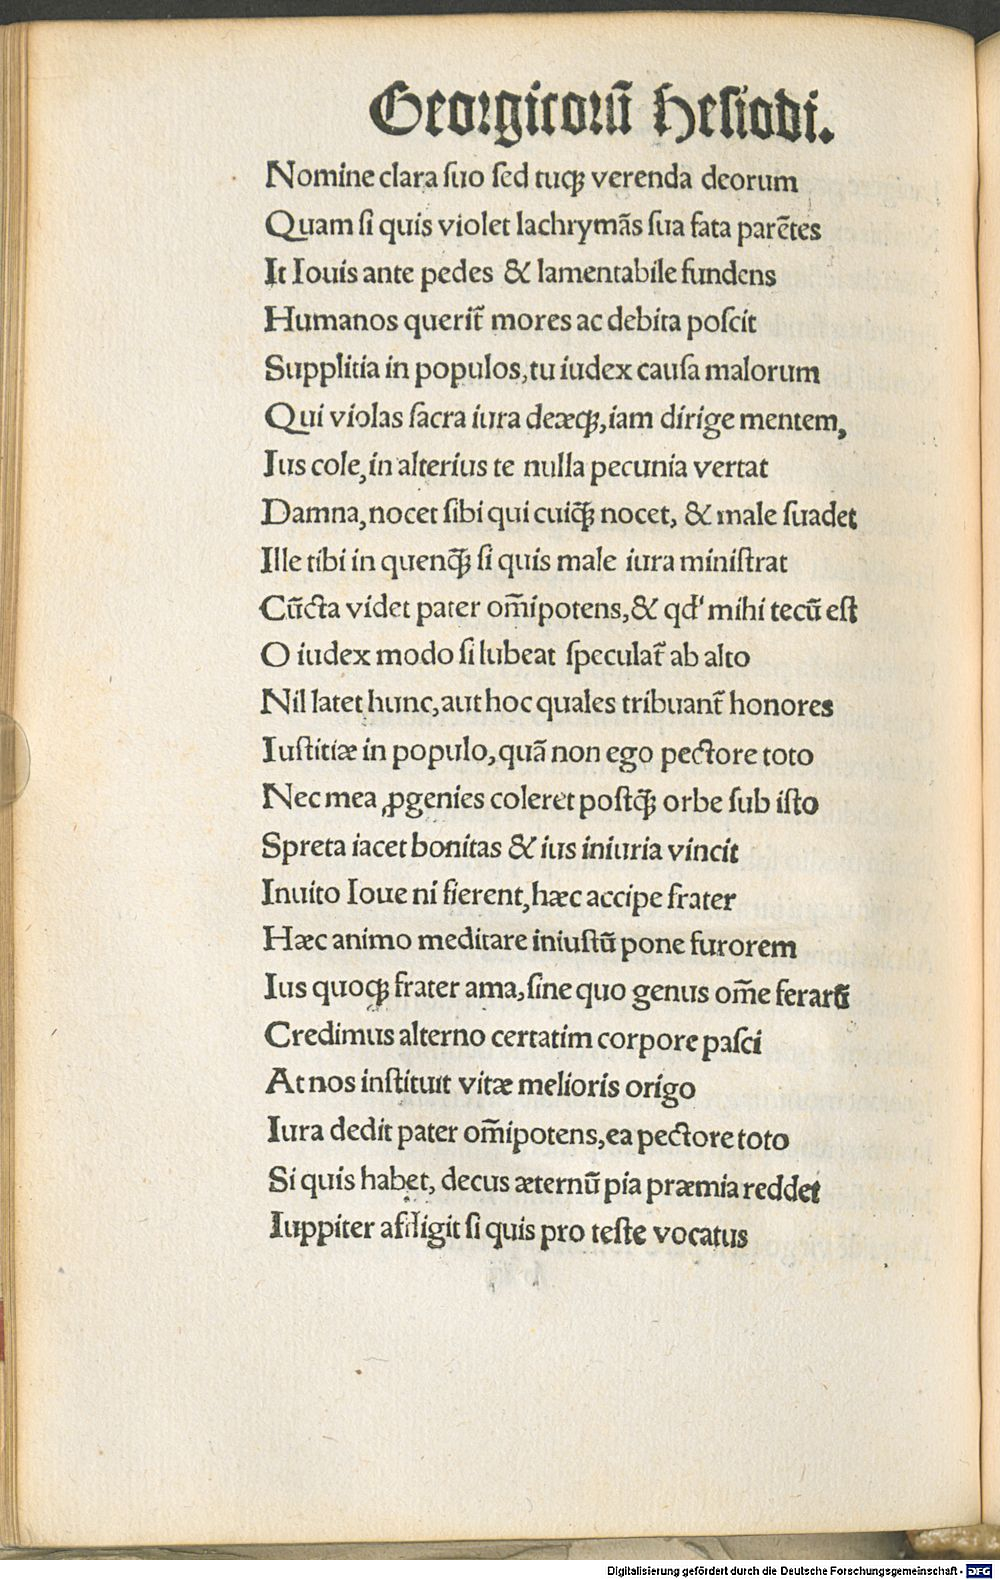 Georgicorũ Hesiodi.
Nomine clara suo sed tuqꝫ verenda deorum
Quam si quis violet lachrymãs sua fata parẽtes
It Iouis ante pedes & lamentabile fundens
Humanos querit̃ mores ac debita poscit
Supplitia in populos, tu iudex causa malorum
Qui violas sacra iura deæqꝫ, iam dirige mentem,
Ius cole, in alterius te nulla pecunia vertat
Damna, nocet sibi qui cuiq̃ꝫ nocet, & male suadet
Ille tibi in quenq̃ꝫ si quis male iura ministrat
Cũcta videt pater om̃ipotens, & qd' mihi tecũ est
O iudex modo si lubeat speculat̃ ab alto
Nil latet hunc, aut hoc quales tribuant̃ honores
Iustitiæ in populo, quã non ego pectore toto
Nec mea ꝓgenies coleret postq̃ꝫ orbe sub isto
Spreta iacet bonitas & ius iniuria vincit
Inuito Ioue ni fierent, hæc accipe frater
Hæc animo meditare iniustũ pone furorem
Ius quoqꝫ frater ama, sine quo genus om̃e ferarũ
Credimus alterno certatim corpore pasci
At nos instituit vitæ melioris origo
Iura dedit pater om̃ipotens, ea pectore toto
Si quis habet, decus æternũ pia præmia reddet
Iuppiter affligit si quis pro teste vocatus
Digitalisierung gefördert durch die Deutsche Forschungsgemeinschaft - DFG